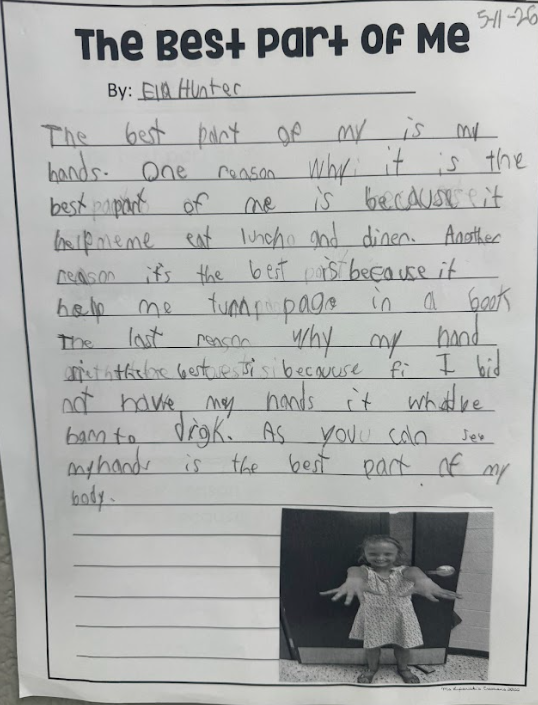 5-11-26
The Best Part Of Me
By: Ella Hunter
The best part of my is my
hands. One reason Why it is the
best part of me is because it
help me eat lunch and diner. Another
reason it's the best part because it
help me turn page in a book
The last reason Why my hand
best is because fi I bid
not have my hands it
ham to As you can see
my hands is the best part of my
body.